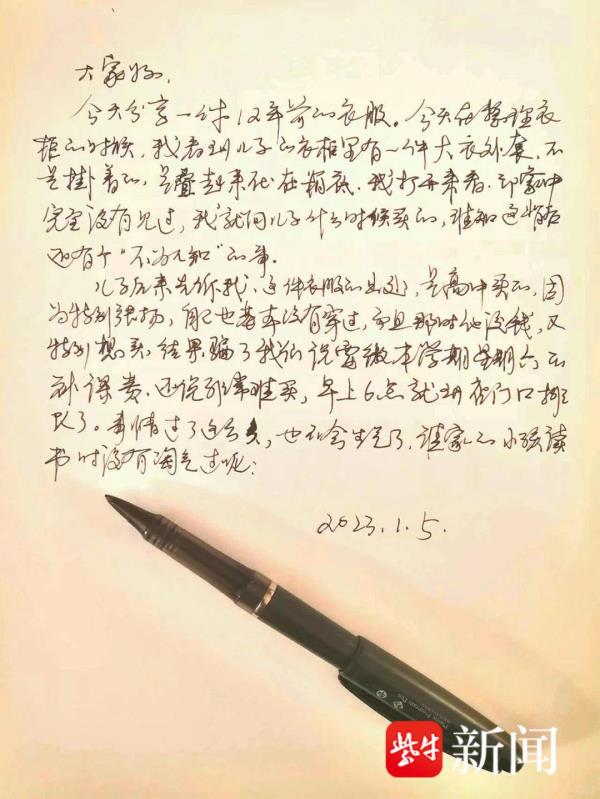 大家好,
今天分享一件12年前的衣服。今天在整理衣
柜的时候,我看到儿子的衣柜里有一件大衣外套,不
是挂着的,是叠起来放在箱底,我打开来看,印象中
完全没有见过,我就问儿子什么时候买的,谁知这背后
还有个“不为人知”的事.
儿子后来告诉我,这件衣服的出处,是高中买的,因
为特别张扬,自己也基本没有穿过,而且那时他没钱,又
特别想买,结果骗了我们说需缴本学期星期六的
补课费.还说非常难买,早上6点就到店门口排
队了。事情过了这么久,也不会生气了,谁家的小孩读
书时没有淘气过呢;
2023.1.5.
紫牛新闻